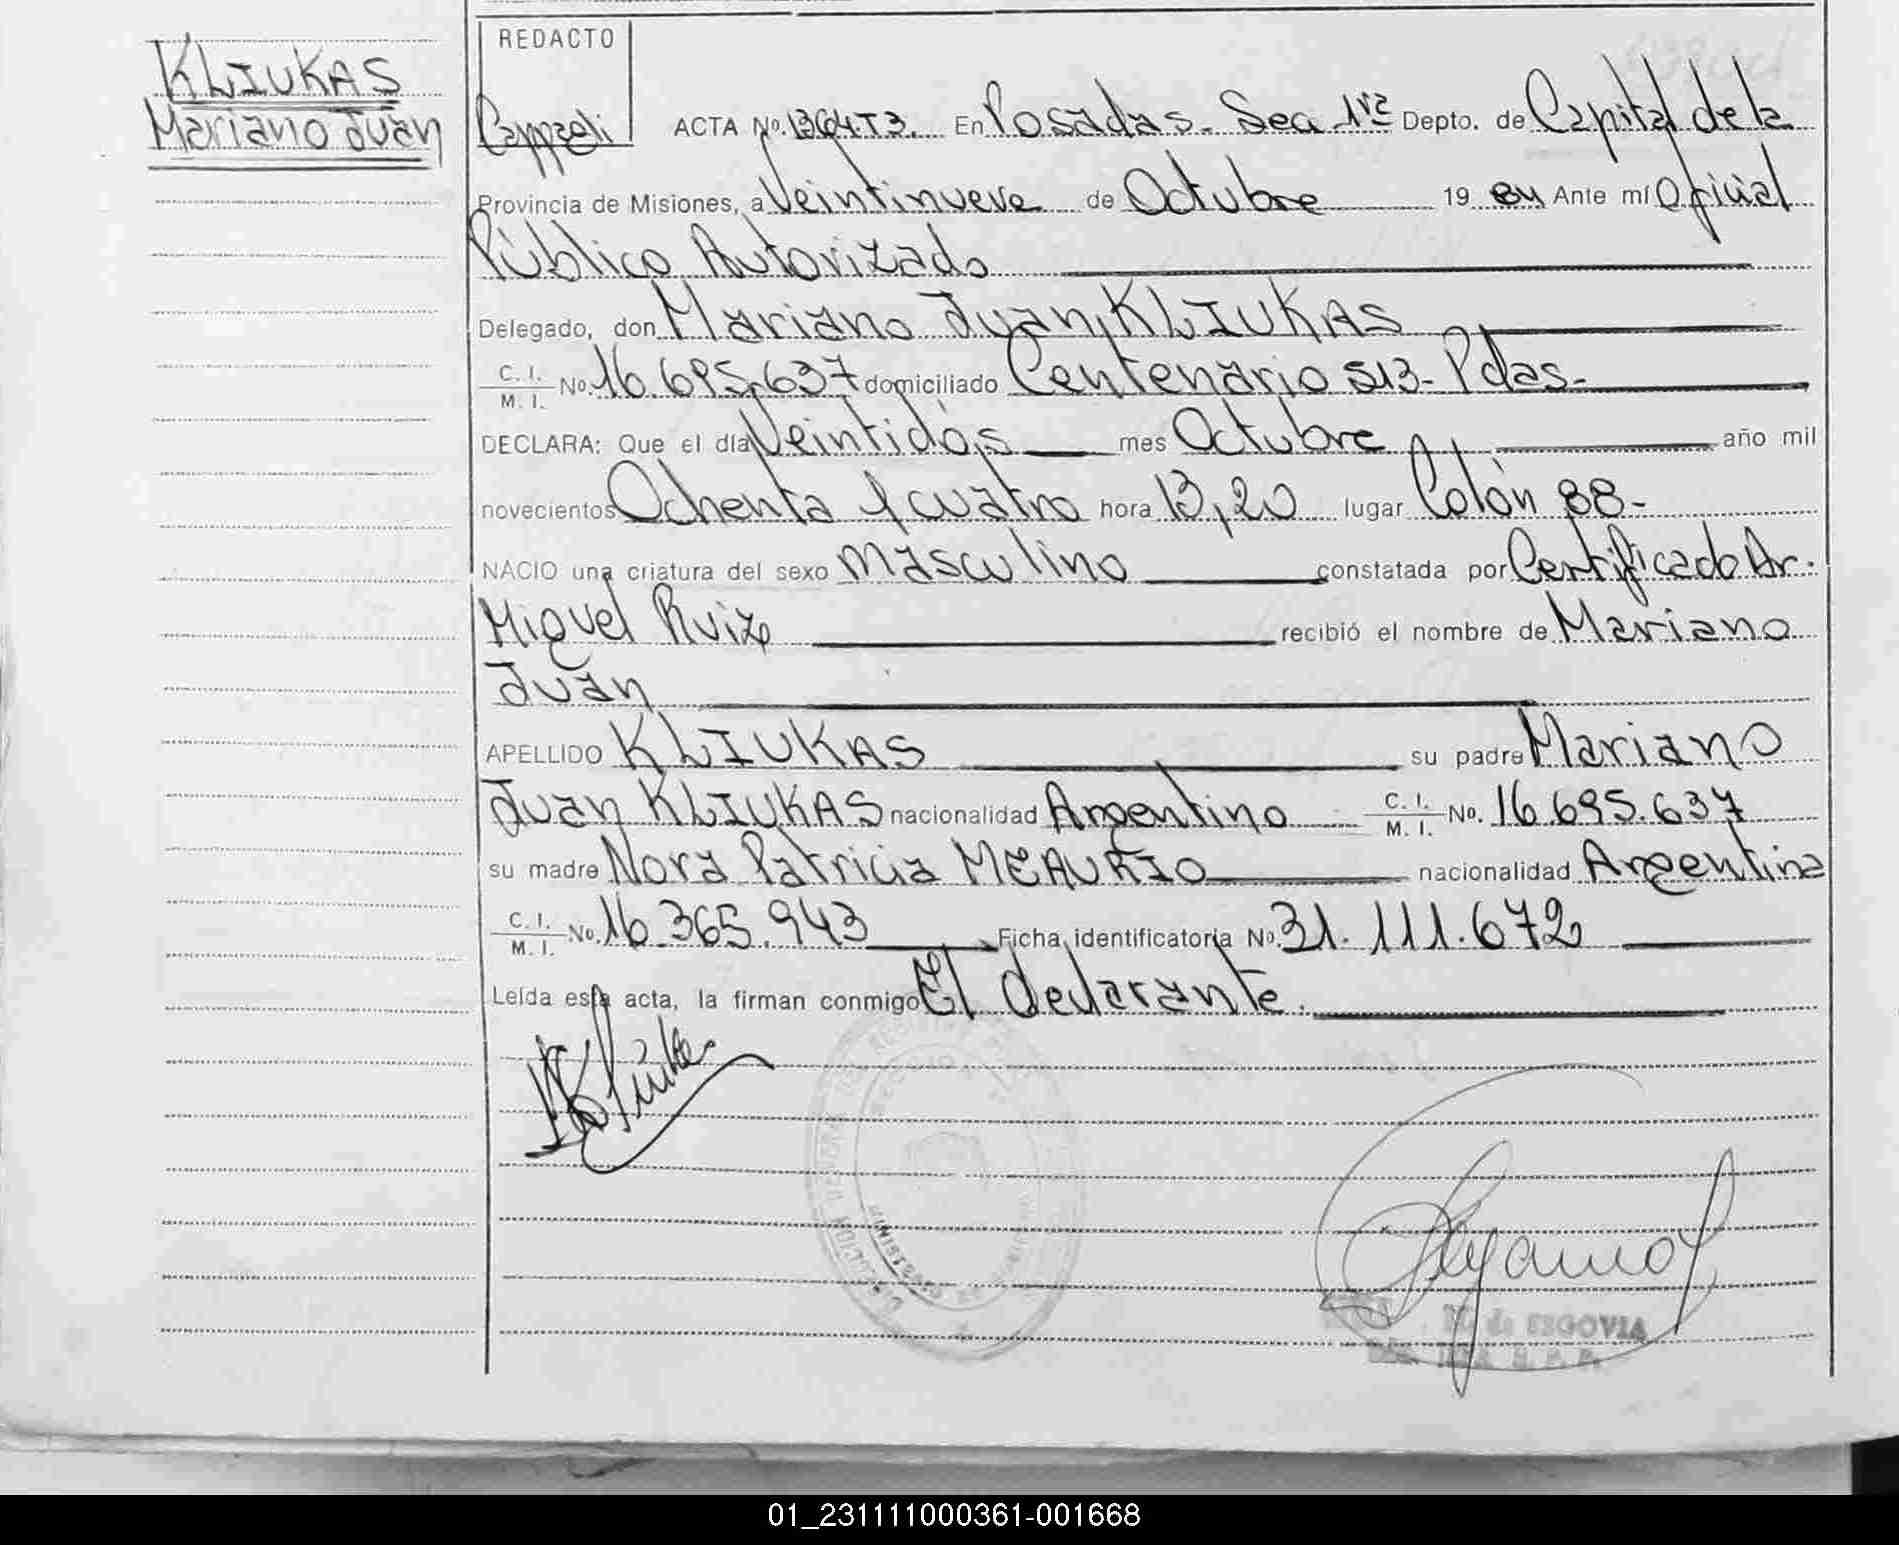 KLIUKAS
Mariano Juan
REDACTO
ACTA No. 1364 T3. En Posadas. Sea 1ra Depto. de Capital de la
Provincia de Misiones, a Veintinueve de Octubre 19 84 Ante mí Oficial
Público Autorizado
Delegado, don Mariano Juan, KLIUKAS
C. I. M. I. No. 16.695.637 domiciliado Centenario 513 - Pdas -
DECLARA: Que el día Veintidós mes Octubre año mil
novecientos Ochenta y cuatro hora 13,20 lugar Colón 88 -
NACIO una criatura del sexo masculino constatada por Certificado Dr.
Miguel Ruiz recibió el nombre de Mariano
Juan
APELLIDO KLIUKAS su padre Mariano
Juan KLIUKAS nacionalidad Argentino C. I. M. I. No. 16.695.637
su madre Nora Patricia MEAURIO nacionalidad Argentina
C. I. M. I. No. 16.365.943 Ficha identificatoria No. 31.111.672
Leída esta acta, la firman conmigo El declarante.
de SEGOVIA
01_231111000361-001668